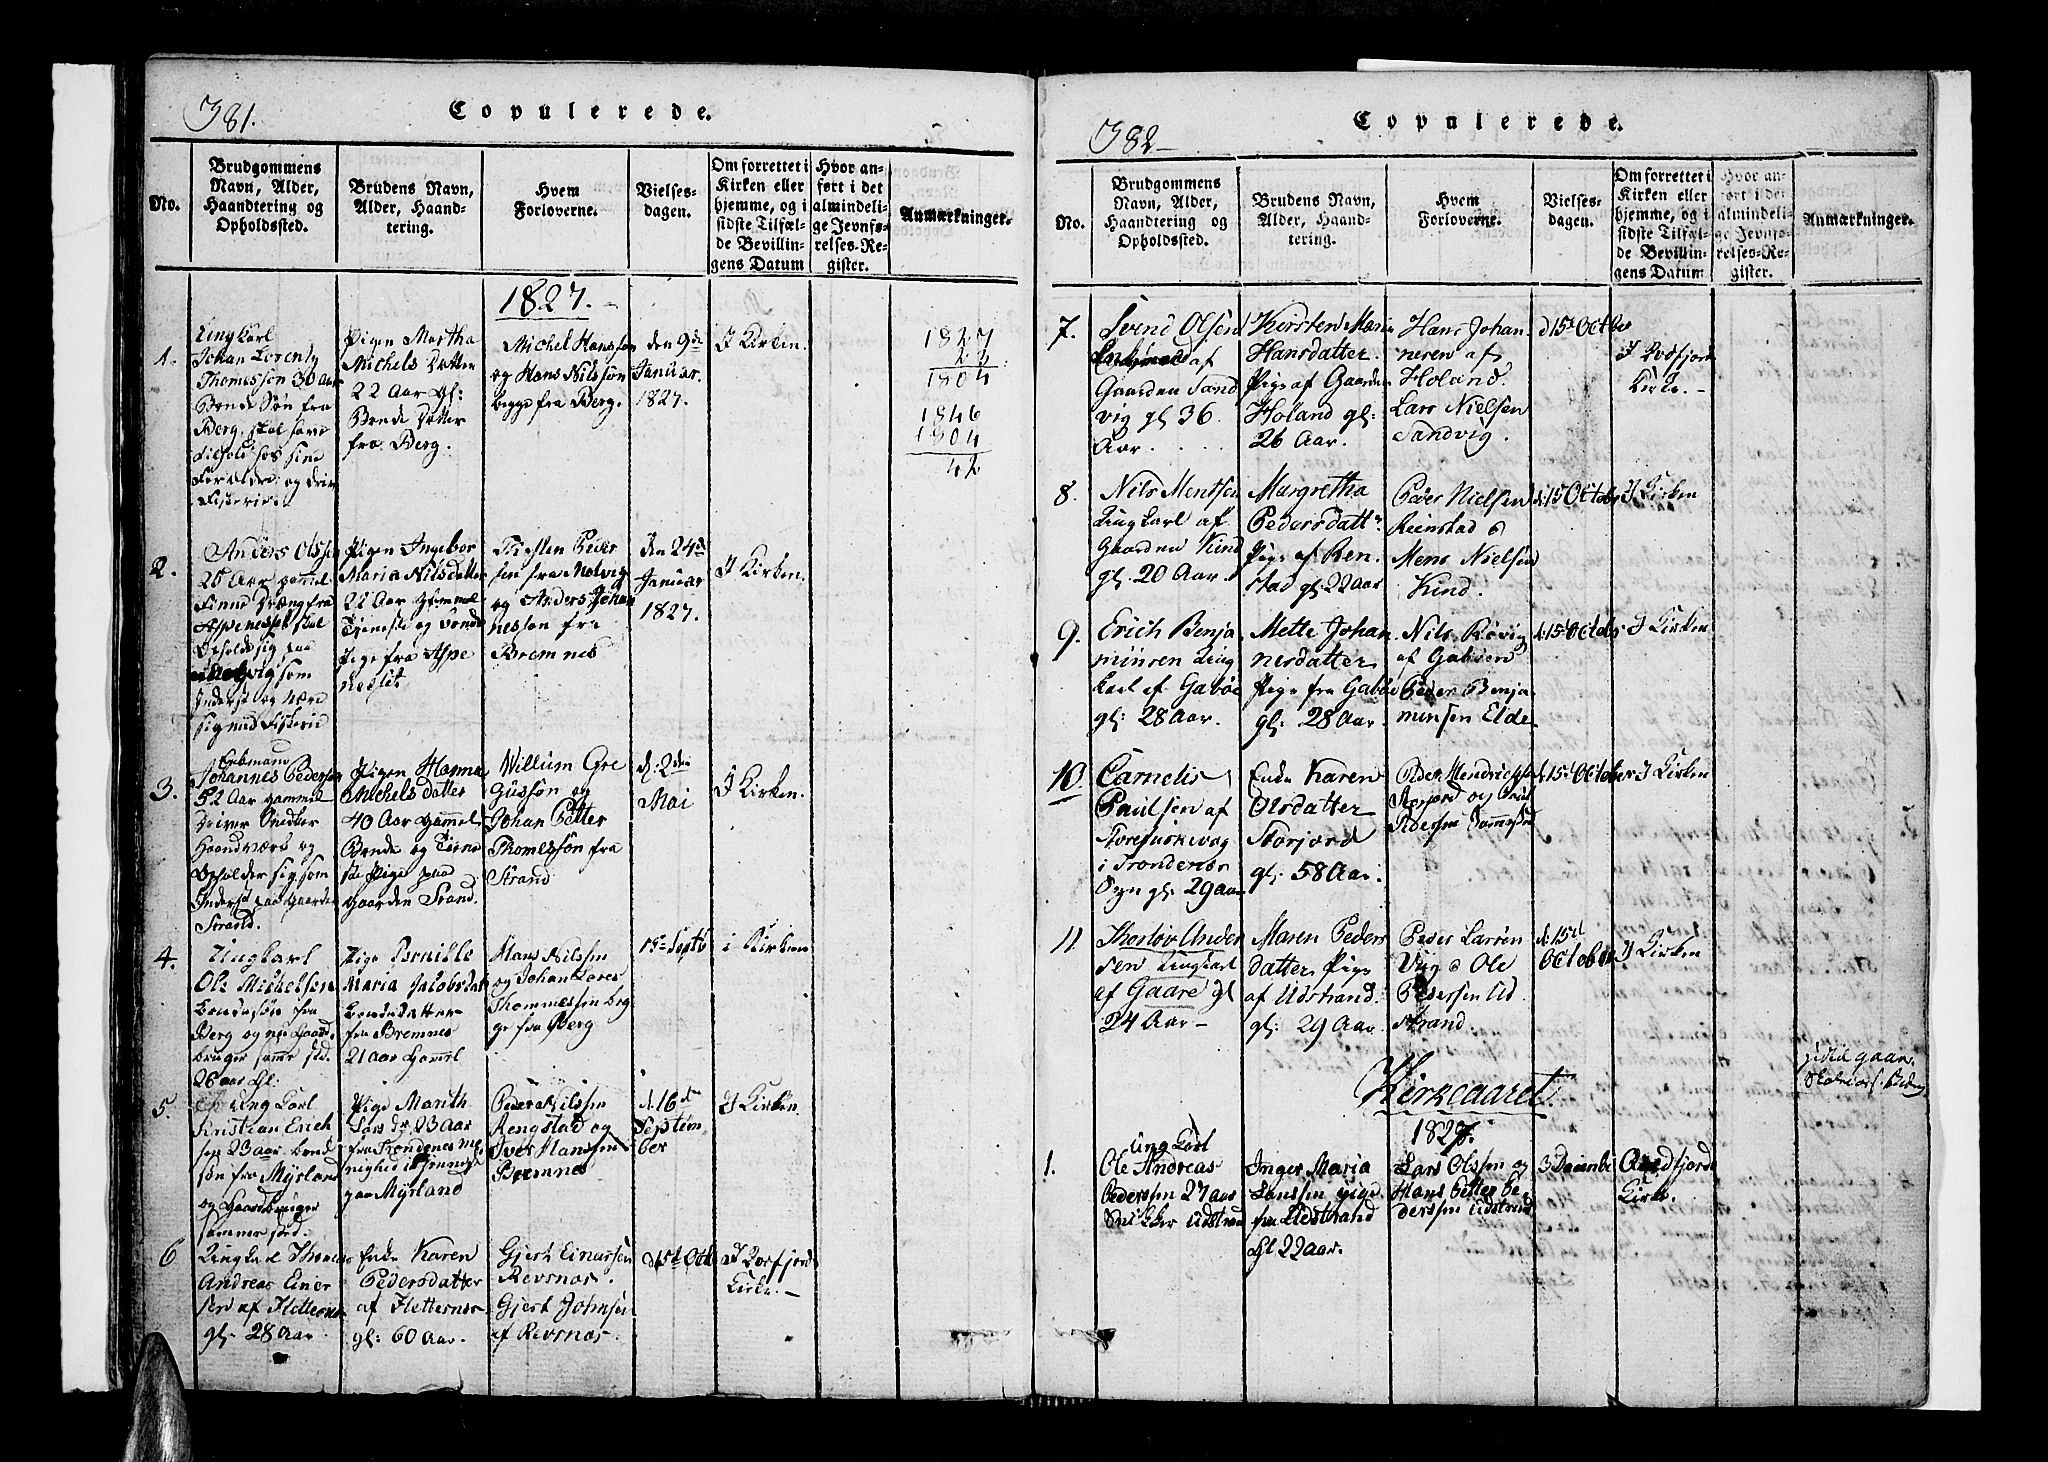 381.
Copulerede.
No.
Brudgommens
Navn, Alder,
Haandtering og
Opholdssted.
Brudens Navn,
Alder, Haand-
tering.
Hvem
Forloverne.
Vielses-
dagen.
Om forrettet i
Kirken eller
hjemme, og i
sidste Tilfæl-
de Bevillin-
gens Datum
Hvor an-
ført i det
almindeli-
ge Jevnfø-
relses-Re-
gister.
Anmærkninger.
1827.
1.
Ungkarl
Johan Lorents
Thomessøn 30 Aar
Bonde Søn fra
Berg, skal have
Tilhold hos sine
Forældre og drive
Fiskerie.
Pigen Martha
Michels Datter
22 Aar Gl:
Bonde Datter
fra Berg.
Michel Hanssøn
og Hans Nilssøn
begge fra Berg.
den 9de
Januar.
1827.
I Kirken.
1827
23
1804
1846
1804
42
2.
Anders Olssen
25 Aar gammel
Finne Dræng fra
Aspenesset skal
Opholde sig paa
som
Inderst og nære
sig med Fiskerie
Pigen Ingebor
Maria Nilsdatter
22 Aar Gammel
Tieneste og Bonde
Pige fra Aspe
nesset
Peder
sen fra Molvig
og Anders Johan
nessøn fra
Bremnes
den 24de
Januar
1827.
I Kirken.
3.
Enkemand
Johannes Pedersen
52 Aar gammel
Driver Snedker
Haandværk og
Opholder sig som
Inderst paa Gaarden
Strand.
Pigen Hanna
Michels datter
40 Aar Gammel
Bonde og Tiene
ste Pige paa
Gaarden Strand.
Willum Gre
gussøn og
Johan Petter
Thomessøn fra
Strand
d: 2den
Mai
I Kirken.
4.
Ungkarl
Ole Michelsen
bondesøn fra
Berg og nu Gaard
bruger samme sted.
26 aar Gl:
Pige Pernille
Maria Jakobsdat
bondedatter
fra Bremnes
21 aar Gamel
Hans Nilsen
og Johan Lores
Thommessen beg
ge fra Berg
15de Septb
i Kirken
5.
Ung Carl
Kristian Erich
sen 23 aar bond
søn fra Myrland
og Gaardbruger
samme sted.
Pige Marith
Lars dr. 23 Aar
fra Trondenes me
nighed tiennende
paa Myrland
Peder Nilsen
Rengstad og
Iver Hanssen
Bremnes
d. 16de
Septem
ber
I Kirken.
6
Ungkarl Thomas
Andreas Einer
sen af Fletternes
gl. 28 Aar.
Enke Karen
Pedersdatter
af Fletternes
gl: 60 Aar.
Gjert Einarsen
Revsnes.
Gjert Johnsen
af Revsnes.
d15d Octb
I Qvæfjords
Kirke.
382
Copulerede.
No.
Brudgommens
Navn, Alder,
Haandtering og
Opholdssted.
Brudens Navn,
Alder, Haand-
tering.
Hvem
Forloverne.
Vielses-
dagen.
Om forrettet i
Kirken eller
hjemme, og i
sidste Tilfæl-
de Bevillin-
gens Datum
Hvor an-
ført i det
almindeli-
ge Jevnfø-
relses-Re-
gister.
Anmærkninger.
7.
Svend Olsen
af
Gaarden Sand
vig gl 36
Aar
Kirsten Marie
Hansdatter.
Pige af Gaarden
Holand gl:
26 Aar.
Hans Johan
nesen af
Holand.
Lars Nielsen
Sandvig.
d15d Octbr
I Qvæfjords
Kirke.
8.
Nils Mentsen
Ungkarl af
Gaarden Kind
gl. 20 Aar.
Margretha
Pedersdattr
Pige af Ren
stad gl: 22 aar
Peder Nielsen
Reinstad &
Mens Nielsen
Kind.
d:15 October
I Kirken
9.
Erich Benja
minsen Ung
karl af Gabøe
gl: 28 Aar.
Mette Johan
nesdatter
Pige fra Gabøe
gl: 28 Aar.
Nils Røvig
af Gabøen
Peder Benja
minsen Elde
d:15d Octobr
I Kirken
10.
Cornelis
Paulsen af
i Trondenæs
Sogn gl. 29 aar
Enke Karen
Olsdatter
Storjord
gl: 58 Aar.
Peder Hendrichsen
Storjord og Poul
Pedersen
d.15d October
I Kirken
11.
Thorløv Ander
sen Ungkarl
af Gaare gl
24 Aar
Maren Peders
datter Pige
af Udstrand.
gl: 29 Aar.
Peder Larsen
Viig & Ole
Pedersen Ud
strand.
d:15d
October
I Kirken
Kirkegaaret.
1827.
1.
Ung Carl
Ole Andreas
Pederssen 27 aar
Snikker Udstrand
Inger Maria
Larssen pige
fra Udstrand
Gl 22 aar.
Lars Olsen og
Hans Petter Pe
derssen Udstrand
3 Decembr
Qvedfjords
Kirke.